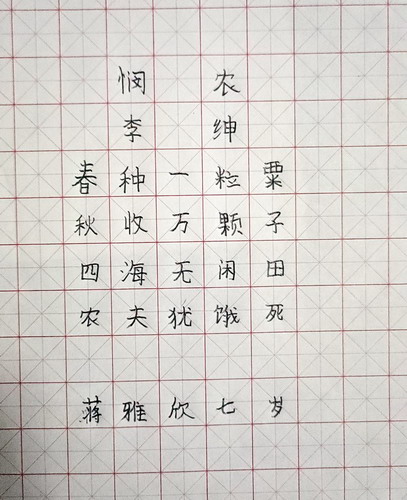 悯农
李绅
春种一粒粟
秋收万颗子
四海无闲田
农夫犹饿死
蒋雅欣七岁